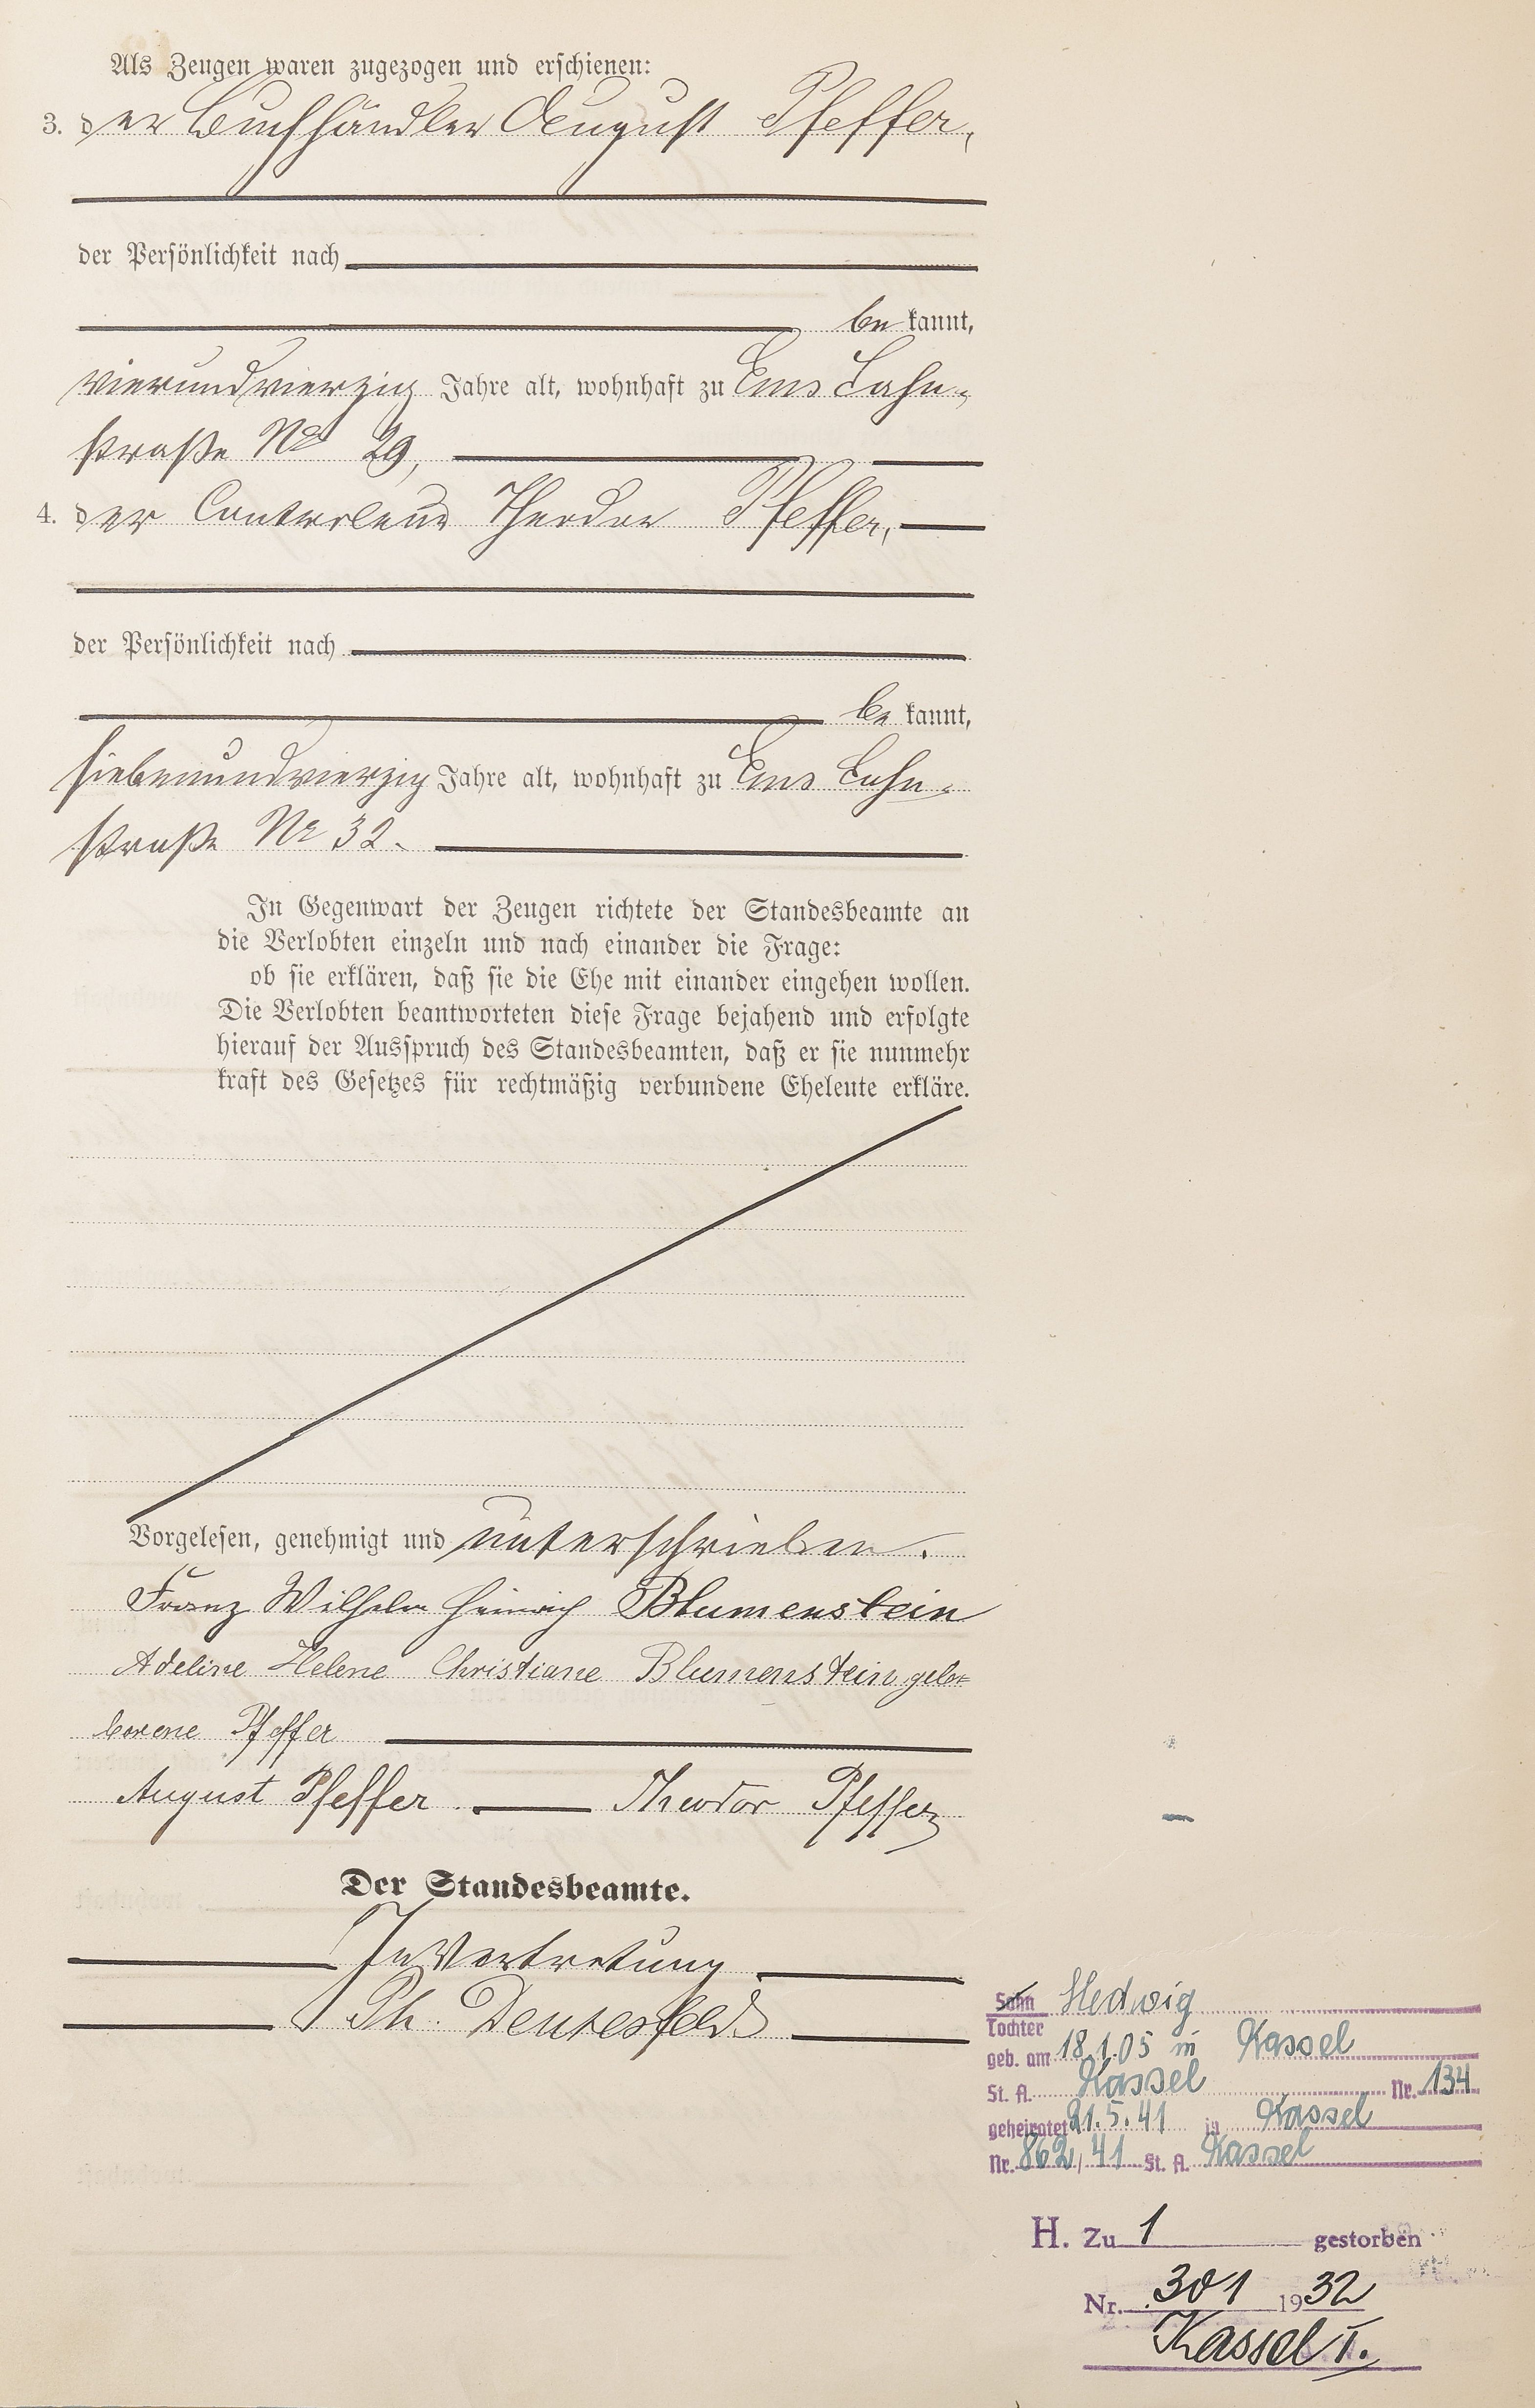 Als Zeugen waren zugezogen und erschienen:
3. der Buchhändler August Pfeffer,
der Persönlichkeit nach
be kannt,
vierundvierzig Jahre alt, wohnhaft zu Ems Lahn-
straße No 29,
4. der Controleur Theodor Pfeffer,
der Persönlichkeit nach
be kannt,
siebenundvierzig Jahre alt, wohnhaft zu Ems Lahn-
straße Nr 32.
In Gegenwart der Zeugen richtete der Standesbeamte an
die Verlobten einzeln und nach einander die Frage:
ob sie erklären, daß sie die Ehe mit einander eingehen wollen.
Die Verlobten beantworteten diese Frage bejahend und erfolgte
hierauf der Ausspruch des Standesbeamten, daß er sie nunmehr
kraft des Gesetzes für rechtmäßig verbundene Eheleute erkläre.
Vorgelesen, genehmigt und unterschrieben.
Franz Wilhelm Heinrich Blumenstein
Adeline Helene Christiane Blumenstein
borene Pfeffer
August Pfeffer Theodor Pfeffer
Der Standesbeamte.
In Vertretung
Ph.
Sohn Hedwig
Tochter
geb. am 18.1.05 in Kassel
St. A. Kassel Nr. 134
geheiratet 21.5.41 in Kassel
Nr. 862/41 St. A. Kassel
H. Zu 1 gestorben
Nr. 301 1932
Kassel I.